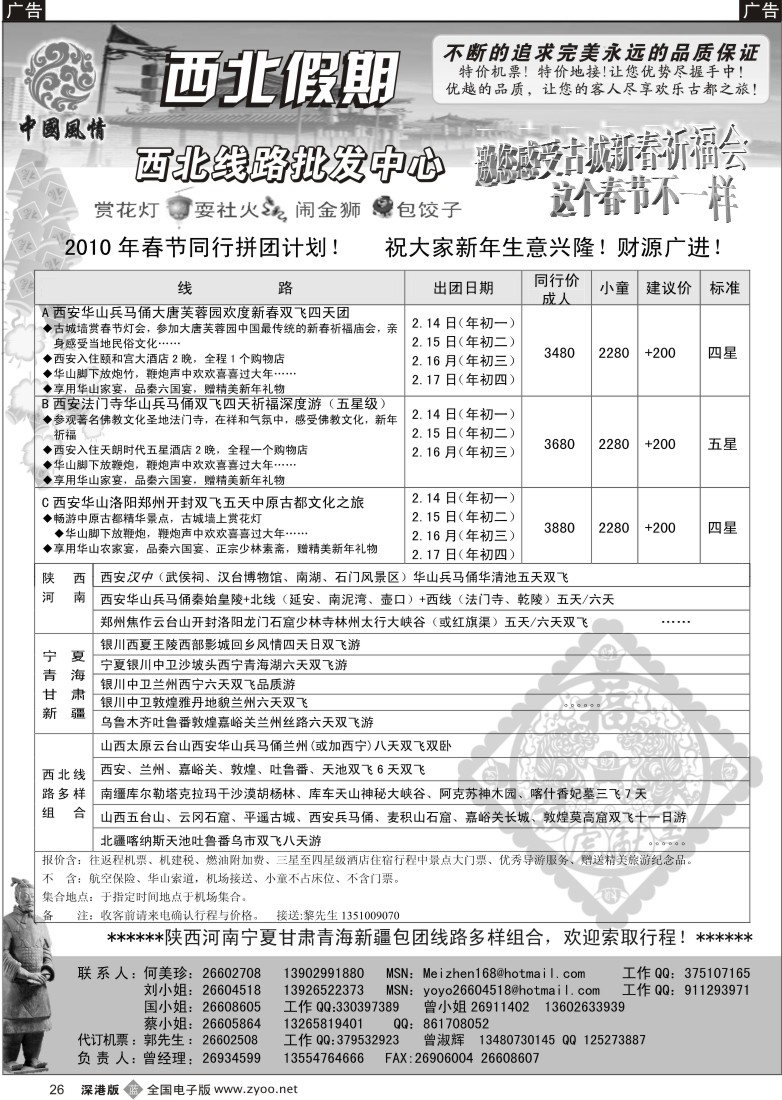 广告
广告
中國風情
西北假期
不断的追求完美永远的品质保证
特价机票！特价地接!让您优势尽握手中!
优越的品质，让您的客人尽享欢乐古都之旅!
西北线路批发中心
邀您感受古城新春祈福会
这个春节不一样
赏花灯 耍社火 闹金狮 包饺子
2010 年春节同行拼团计划！ 祝大家新年生意兴隆！财源广进！
线 路 出团日期 同行价成人 小童 建议价 标准
A 西安华山兵马俑大唐芙蓉园欢度新春双飞四天团
◆古城墙赏春节灯会，参加大唐芙蓉园中国最传统的新春祈福庙会，亲
身感受当地民俗文化……
◆西安入住颐和宫大酒店 2 晚，全程 1 个购物店
◆华山脚下放炮竹，鞭炮声中欢欢喜喜过大年……
◆享用华山家宴，品秦六国宴，赠精美新年礼物
2.14 日(年初一)
2.15 日(年初二)
2.16 月(年初三)
2.17 日(年初四)
3480 2280 +200 四星
B 西安法门寺华山兵马俑双飞四天祈福深度游（五星级）
◆参观著名佛教文化圣地法门寺，在祥和气氛中，感受佛教文化，新年
祈福
◆西安入住天朗时代五星酒店 2 晚，全程一个购物店
◆华山脚下放鞭炮，鞭炮声中欢欢喜喜过大年……
◆享用华山家宴，品秦六国宴，赠精美新年礼物
2.14 日(年初一)
2.15 日(年初二)
2.16 月(年初三)
3680 2280 +200 五星
C 西安华山洛阳郑州开封双飞五天中原古都文化之旅
◆畅游中原古都精华景点，古城墙上赏花灯
◆华山脚下放鞭炮，鞭炮声中欢欢喜喜过大年……
◆享用华山农家宴，品秦六国宴、正宗少林素斋，赠精美新年礼物
2.14 日(年初一)
2.15 日(年初二)
2.16 月(年初三)
2.17 日(年初四)
3880 2280 +200 四星
陕 西
河 南
西安汉中（武侯祠、汉台博物馆、南湖、石门风景区）华山兵马俑华清池五天双飞
西安华山兵马俑秦始皇陵+北线（延安、南泥湾、壶口）+西线（法门寺、乾陵）五天/六天
郑州焦作云台山开封洛阳龙门石窟少林寺林州太行大峡谷（或红旗渠）五天/六天双飞 ……
宁 夏
青 海
甘 肃
新 疆
银川西夏王陵西部影城回乡风情四天日双飞游
宁夏银川中卫沙坡头西宁青海湖六天双飞游
银川中卫兰州西宁六天双飞品质游
银川中卫敦煌雅丹地貌兰州六天双飞 。。。。。。
乌鲁木齐吐鲁番敦煌嘉峪关兰州丝路六天双飞游
西北线
路多样
组 合
山西太原云台山西安华山兵马俑兰州(或加西宁)八天双飞双卧
西安、兰州、嘉峪关、敦煌、吐鲁番、天池双飞 6 天双飞
南缰库尔勒塔克拉玛干沙漠胡杨林、库车天山神秘大峡谷、阿克苏神木园、喀什香妃墓三飞 7 天
山西五台山、云冈石窟、平遥古城、西安兵马俑、麦积山石窟、嘉峪关长城、敦煌莫高窟双飞十一日游
北疆喀纳斯天池吐鲁番乌市双飞八天游 。。。。。。
报价含：往返程机票、机建税、燃油附加费、三星至四星级酒店住宿行程中景点大门票、优秀导游服务、赠送精美旅游纪念品。
不 含：航空保险、华山索道，机场接送、小童不占床位、不含门票。
集合地点：于指定时间地点于机场集合。
备 注：收客前请来电确认行程与价格。 接送:黎先生 1351009070
******陕西河南宁夏甘肃青海新疆包团线路多样组合，欢迎索取行程！******
联 系 人：何美珍：26602708 13902991880 MSN：Meizhen168@hotmail.com 工作 QQ：375107165
刘小姐：26604518 13926522373 MSN：yoyo26604518@hotmail.com 工作 QQ：911293971
国小姐：26608605 工作 QQ:330397389 曾小姐 26911402 13602633939
蔡小姐：26605864 13265819401 QQ：861708052
代订机票：郭先生 ：26602508 工作 QQ:379532923 曾淑辉 13480730145 QQ 125273887
负 责 人：曾经理：26934599 13554764666 FAX:26906004 26608607
26 深港版 蓝 全国电子版 www.zyoo.net